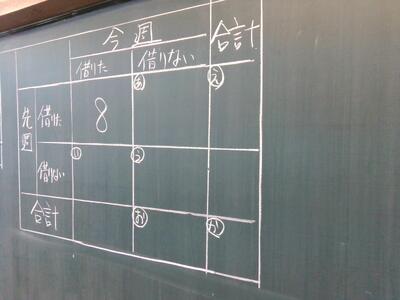 今週 合計
借りた 借りない
先週 借りた 8 あ え
借りない い う
合計 お か